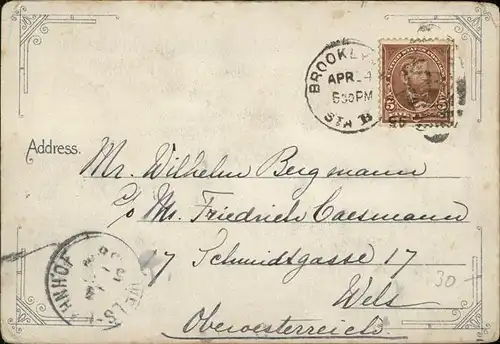 BROOKLYN
APR 24
630PM
STA B
5
Address.
Mr. Wilhelm Bergmann
c/o Mr. Friedrich Caesmann
17 Schmidtgasse 17
Wels
Oberoesterreich
BAHNHOF WELS
30-